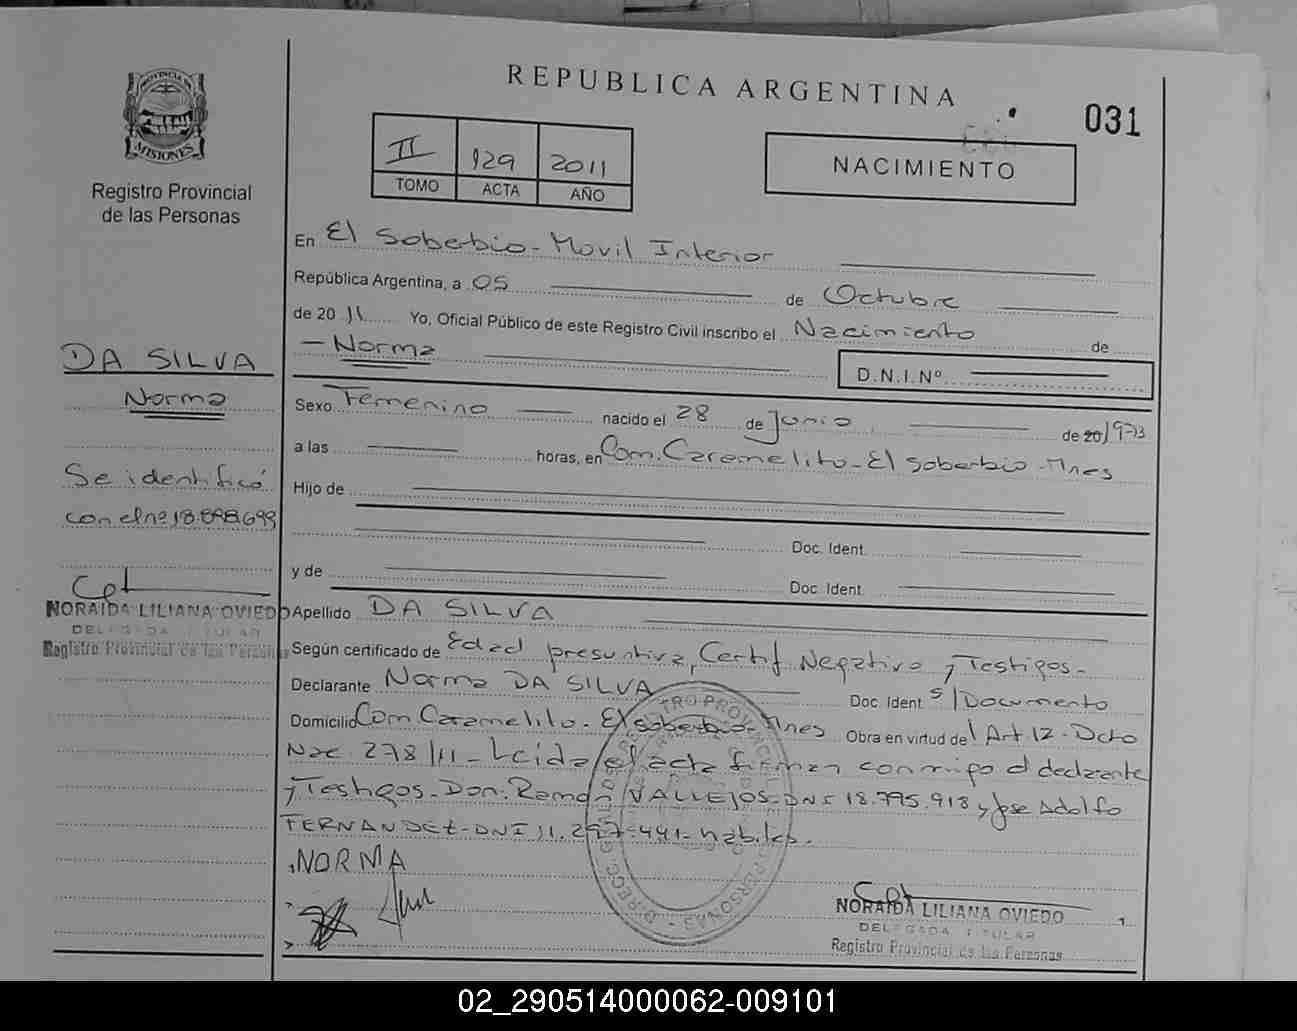 REPUBLICA ARGENTINA
031
PROVINCIA
MISIONES
Registro Provincial
de las Personas
II 129 2011
TOMO ACTA AÑO
NACIMIENTO
En El Soberbio - Movil Interior
República Argentina, a 05 de Octubre
de 20 11 Yo, Oficial Público de este Registro Civil inscribo el Nacimiento de
- Norma
D.N.I.Nº
DA SILVA
Norma
Se identificó
con el nº 18.898.699
NORAIDA LILIANA OVIEDO
DELEGADA TITULAR
Registro Provincial de las Personas
Sexo Femenino nacido el 28 de Junio de 20 1973
a las horas, en Com. Caramelito - El soberbio - Mnes
Hijo de
Doc. Ident.
y de
Doc. Ident.
Apellido DA SILVA
Según certificado de Edad presuntiva, Certif. Negativo y Testigos -
Declarante Norma DA SILVA Doc. Ident. S/Documento
Domicilio Com Caramelito - El soberbio - Mnes Obra en virtud del Art. 12 - Dcto
Nac. 278/11 - Leida el acta firman conmigo el declarante
y Testigos - Don: Ramón VALLEJOS - DNI 18.795.918 y Jose Adolfo
FERNANDEZ - DNI 11.297.441 - habiles.
NORMA
NORAIDA LILIANA OVIEDO
DELEGADA TITULAR
Registro Provincial de las Personas
02_290514000062-009101